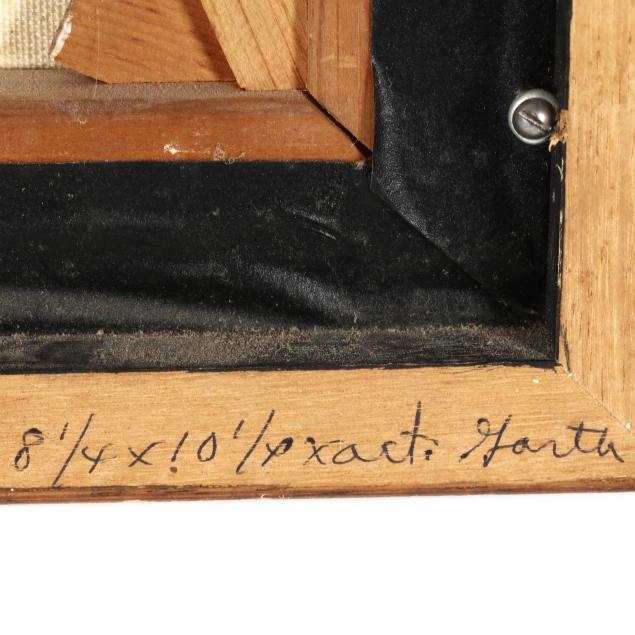 8 1/4 x 10 1/4 xact. Garth